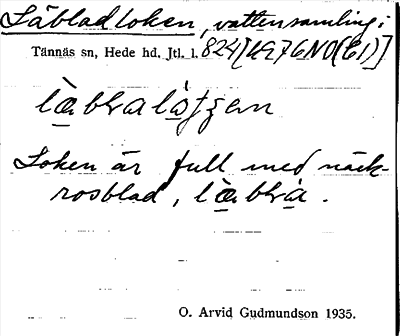 Läbladloken, vattensamling i
Tännäs sn, Hede hd, Jtl. l. 824 [49 76 NO (61)]
Loken är full med näck-
rosblad, læ̀bɫra.
O. Arvid Gudmundson 1935.